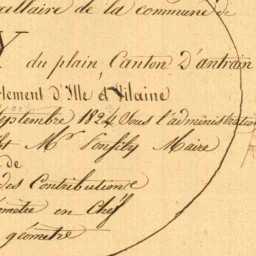 cellaire de la commune de
Y du plain, Canton D'antrain
tement d'Ille et Vilaine
Septembre 1824 Sous l'administration
Mr Maire
de
des Contributions
en Chef
géomètre